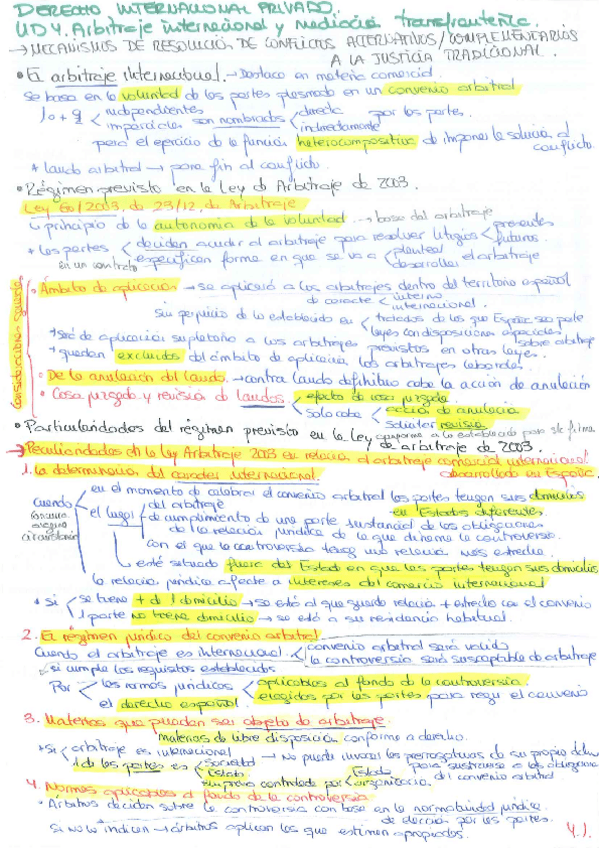 DERECHO INTERNACIONAL PRIVADO.
UD4. Arbitraje internacional y mediación transfronteriza.
→ MECANISMOS DE RESOLUCIÓN DE CONFLICTOS ALTERNATIVOS/COMPLEMENTARIOS
A LA JUSTICIA TRADICIONAL.
• El arbitraje internacional. → Destaca en materia comercial
Se basa en la voluntad de las partes plasmada en un convenio arbitral
1 o + q < independientes / imparciales son nombrados < directa / indirectamente por las partes.
para el ejercicio de la función heterocompositiva de imponer la solución al conflicto.
* laudo arbitral → pone fin al conflicto.
• Régimen previsto en la Ley de Arbitraje de 2003.
Ley 60/2003, de 23/12, de Arbitraje
↳ principio de la autonomía de la voluntad. → base del arbitraje
* las partes < deciden acudir al arbitraje para resolver litigios < presentes / futuros.
en un contrato especifican forma en que se va a < plantear / desarrollar el arbitraje
Consideraciones generales
• Ámbito de aplicación → se aplicará a los arbitrajes dentro del territorio español
de carácter < interno / internacional.
Sin perjuicio de lo establecido en < tratados de los que España sea parte / leyes con disposiciones especiales sobre arbitraje
* Será de aplicación supletoria a los arbitrajes previstos en otras leyes.
* quedan excluidos del ámbito de aplicación los arbitrajes laborales.
• De la anulación del laudo. → contra laudo definitivo cabe la acción de anulación
• Cosa juzgada y revisión de laudos. < efecto de cosa juzgada / solo cabe < acción de anulación / solicitar revisión
conforme a lo establecido para st firme
• Particularidades del régimen previsto en la Ley de arbitraje de 2003.
→ Peculiaridades de la Ley Arbitraje 2003 en relación al arbitraje comercial internacional
desarrollado en España.
1. La determinación del carácter internacional.
Cuando < en el momento de celebrar el convenio arbitral las partes tengan sus domicilios
en Estados diferentes.
el lugar < del arbitraje
de cumplimiento de una parte sustancial de las obligaciones
de la relación jurídica de la que dimane la controversia
con el que la controversia tenga una relación más estrecha.
esté situado fuera del Estado en que las partes tengan sus domicilios
la relación jurídica afecte a intereses del comercio internacional
* si < se tiene + d 1 domicilio → se está al que guarde relación + estrecha con el convenio
1 parte no tiene domicilio → se está a su residencia habitual.
2. El régimen jurídico del convenio arbitral.
Cuando el arbitraje es internacional < convenio arbitral será válido / la controversia será susceptible de arbitraje
si cumple los requisitos establecidos
Por < las normas jurídicas < aplicables al fondo de la controversia / elegidas por las partes para regir el convenio
el derecho español.
3. Materias que pueden ser objeto de arbitraje.
materias de libre disposición conforme a derecho.
* si < arbitraje es internacional → No puede invocar las prerrogativas de su propio
1 de las partes es < Sociedad / Estado / empresa controlada por < Estado / organización para sustraerse a las obligaciones
del convenio arbitral
4. Normas aplicables al fondo de la controversia
• Árbitros deciden sobre la controversia con base en la normatividad jurídica
de elección por las partes.
Si no lo indican → árbitros aplican las que estimen apropiadas.
4.1.